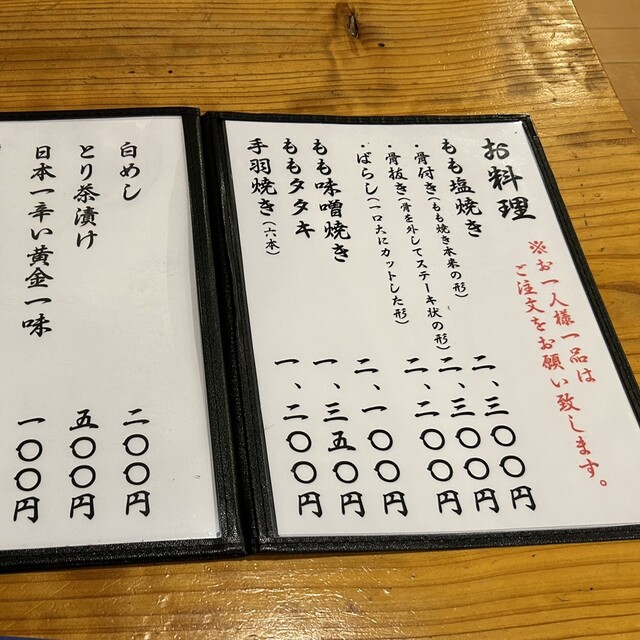 お料理
※お一人様一品は
ご注文をお願い致します。
もも塩焼き
・骨付き(もも焼き本来の形) 二、三〇〇円
・骨抜き(骨を外してステーキ状の形) 二、三〇〇円
・ばらし(一口大にカットした形) 二、二〇〇円
もも味噌焼き 二、一〇〇円
ももタタキ 一、三五〇円
手羽焼き(六本) 一、二〇〇円
白めし 二〇〇円
とり茶漬け 五〇〇円
日本一辛い黄金一味 一〇〇円